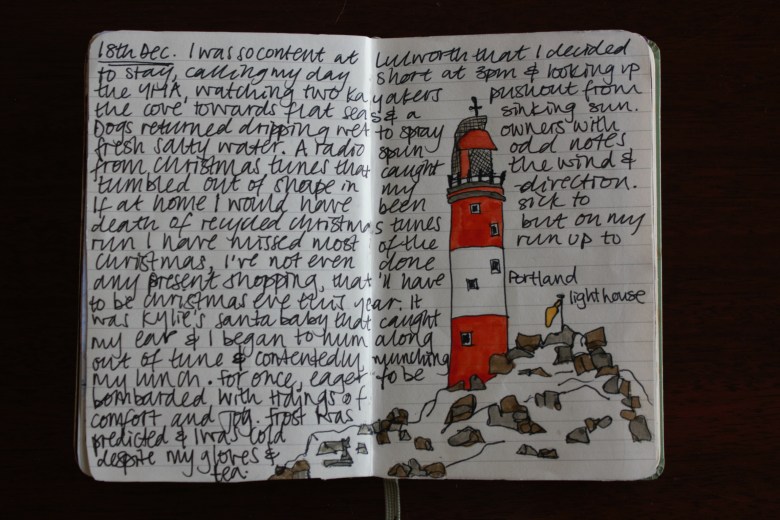 18th Dec. I was so content at Lulworth that I decided
to stay, calling my day short at 3pm & looking up
the YHA, watching two kayakers push out from
the cove towards flat seas & a sinking sun.
Dogs returned dripping wet to spray owners with
fresh salty water. A radio spun odd notes
from christmas tunes that caught the wind &
tumbled out of shape in my direction.
If at home I would have been sick to
death of recycled christmas tunes but on my
run I have missed most of the run up to
christmas, I've not even done
any present shopping, that'll have
to be christmas eve this year. It
was Kylie's santa baby that caught
my ear & I began to hum along
out of tune & contentedly munching
my lunch. For once, eager to be
bombarded with tidings of
comfort and joy. Frost was
predicted & I was cold
despite my gloves &
tea.
Portland
lighthouse